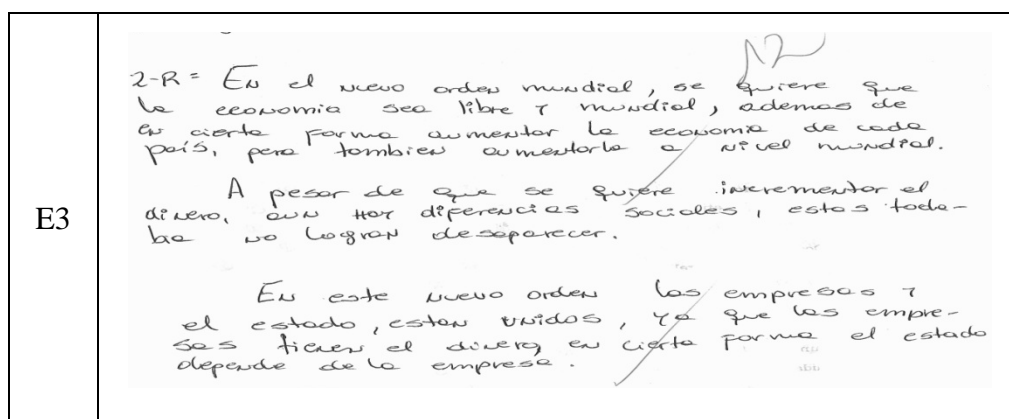 N2
2-R= En el nuevo orden mundial, se quiere que
la economia sea libre y mundial, ademas de
en cierta forma aumentar la economia de cada
país, pero tambien aumentarla a nivel mundial.
A pesar de que se quiere incrementar el
dinero, aun hay diferencias sociales, estas toda-
ba no logran desaparecer.
E3
En este nuevo orden las empresas y
el estado, estan unidos, ya que las empre-
sas tienen el dinero, en cierta forma el estado
depende de la empresa.